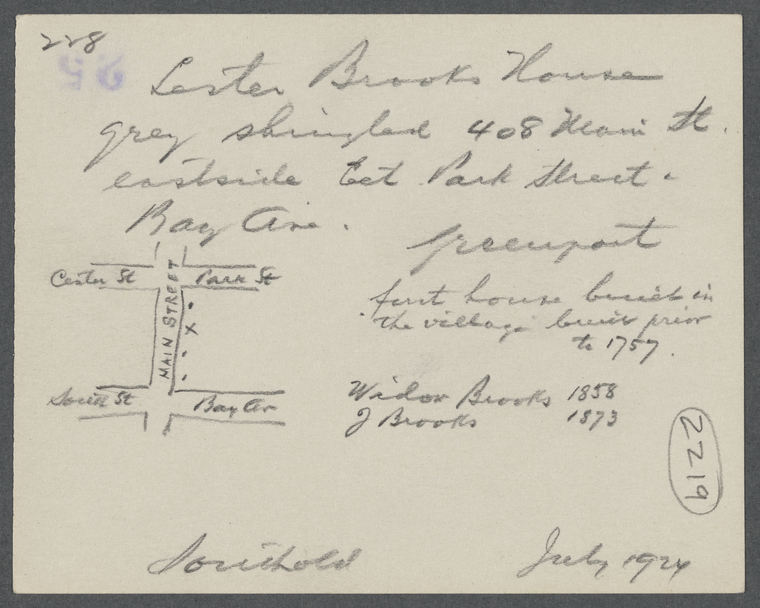 228
25
Lester Brooks House
grey shingled 408 Main St.
eastside bet Park Street &
Bay Ave.
Greenport
first house built in
the village built prior
to 1757.
Center St Park St
MAIN STREET
x
South St Bay Av
Widow Brooks 1858
J Brooks 1873
2219
Southold July 1924